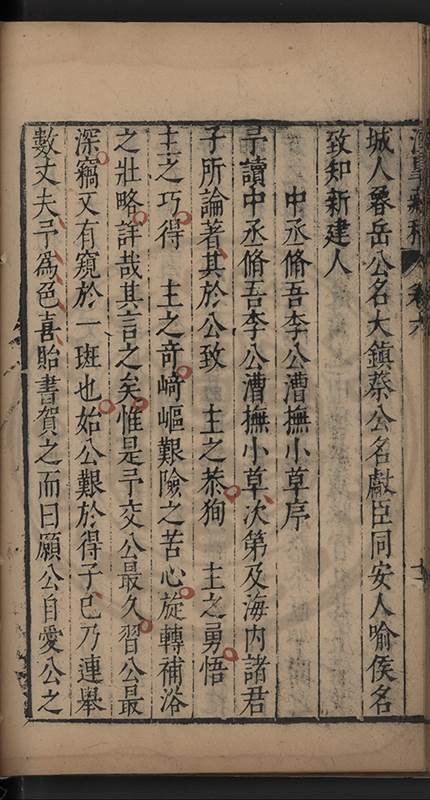 城人晷岳公名大鎮蔡公名獻臣同安人喻侯名
致知新建人
中丞脩吾李公漕撫小草序
予讀中丞脩吾李公漕撫小草次第及海內諸君
子所論著其於公致　主之恭狥　主之勇悟
主之巧得　主之竒﨑嶇艱險之苦心旋轉補浴
之壯略詳哉其言之矣惟是予交公最久習公最
深竊又有窺於一班也始公艱於得子已乃連舉
數丈夫予為色喜貽書賀之而曰願公自愛公之